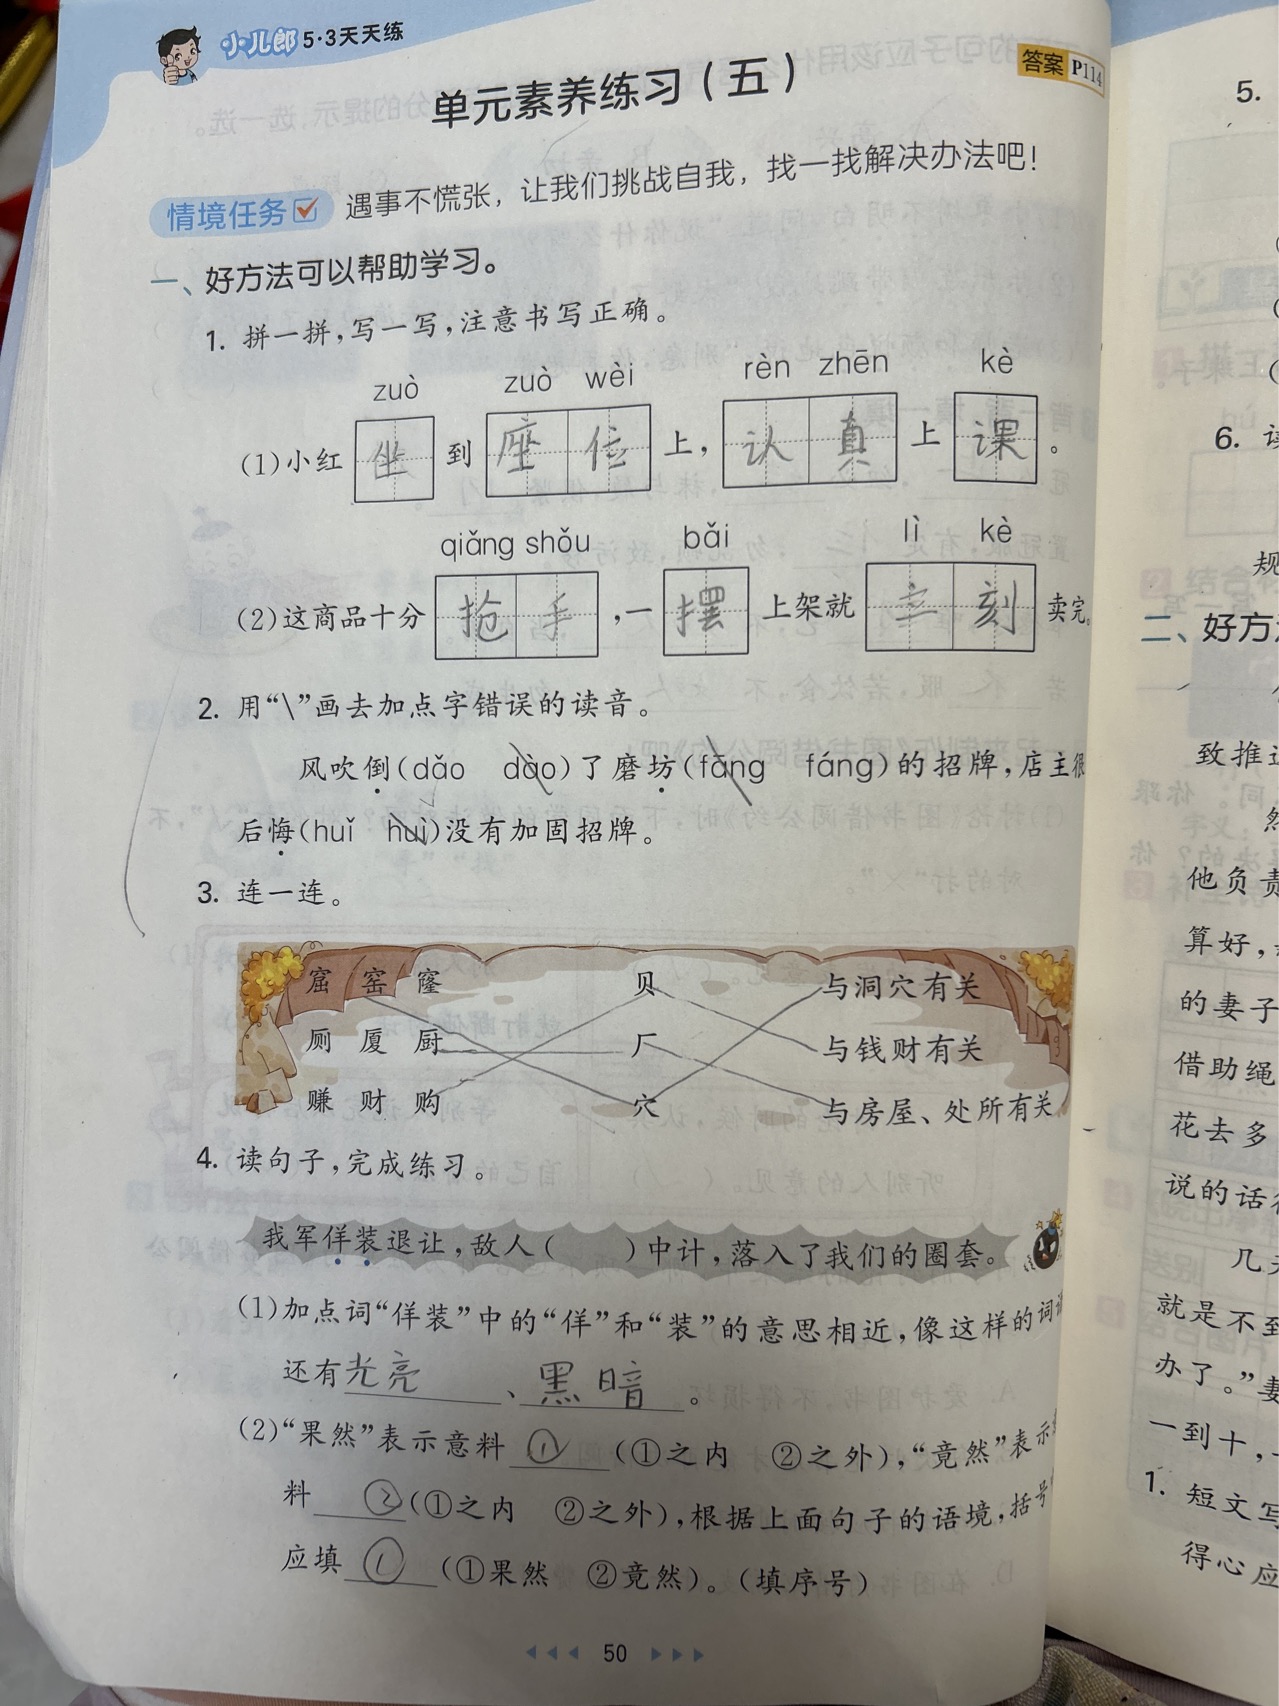 小儿郎 5·3天天练
答案 P114
单元素养练习(五)
情境任务 遇事不慌张，让我们挑战自我，找一找解决办法吧！
一、好方法可以帮助学习。
1. 拼一拼，写一写，注意书写正确。
zuò zuò wèi rèn zhēn kè
(1)小红 坐 到 座位 上，认真 上 课 。
qiǎng shǒu bǎi lì kè
(2)这商品十分 抢手 ，一 摆 上架就 立刻 卖完。
2. 用“\”画去加点字错误的读音。
风吹倒(dǎo dào)了磨坊(fāng fáng)的招牌，店主很
后悔(huǐ huì)没有加固招牌。
3. 连一连。
窟 窑 窿 贝 与洞穴有关
厕 厦 厨 厂 与钱财有关
赚 财 购 穴 与房屋、处所有关
4. 读句子，完成练习。
我军佯装退让，敌人( )中计，落入了我们的圈套。
(1)加点词“佯装”中的“佯”和“装”的意思相近，像这样的词
还有光亮、黑暗。
(2)“果然”表示意料 ① (①之内 ②之外)，“竟然”表示
料 ② (①之内 ②之外)，根据上面句子的语境，括号
应填 ① (①果然 ②竟然)。(填序号)
50
5.
6.
规
二、好方
致推
他负责
算好，
的妻子
借助绳
花去多
说的话
几天
就是不到
办了。”妻
一到十，
1. 短文写
得心应